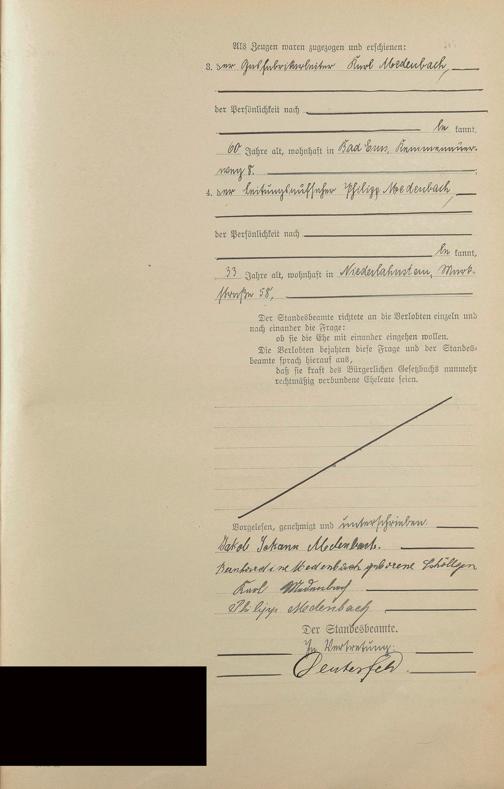 Als Zeugen waren zugezogen und erschienen:
3. der Gasfabrikarbeiter Karl Medenbach,
der Persönlichkeit nach
be kannt,
60 Jahre alt, wohnhaft in Bad Ems, Kemmenauer-
weg 8.
4. der Leitungsaufseher Philipp Medenbach,
der Persönlichkeit nach
be kannt,
33 Jahre alt, wohnhaft in Niederlahnstein, Markt-
straße 58,
Der Standesbeamte richtete an die Verlobten einzeln und
nach einander die Frage:
ob sie die Ehe mit einander eingehen wollen.
Die Verlobten bejahten diese Frage und der Standes-
beamte sprach hierauf aus,
daß sie kraft des Bürgerlichen Gesetzbuchs nunmehr
rechtmäßig verbundene Eheleute seien.
Vorgelesen, genehmigt und unterschrieben
Jakob Johann Medenbach.
Medenbach geborene
Karl Medenbach
Philipp Medenbach
Der Standesbeamte.
In Vertretung: